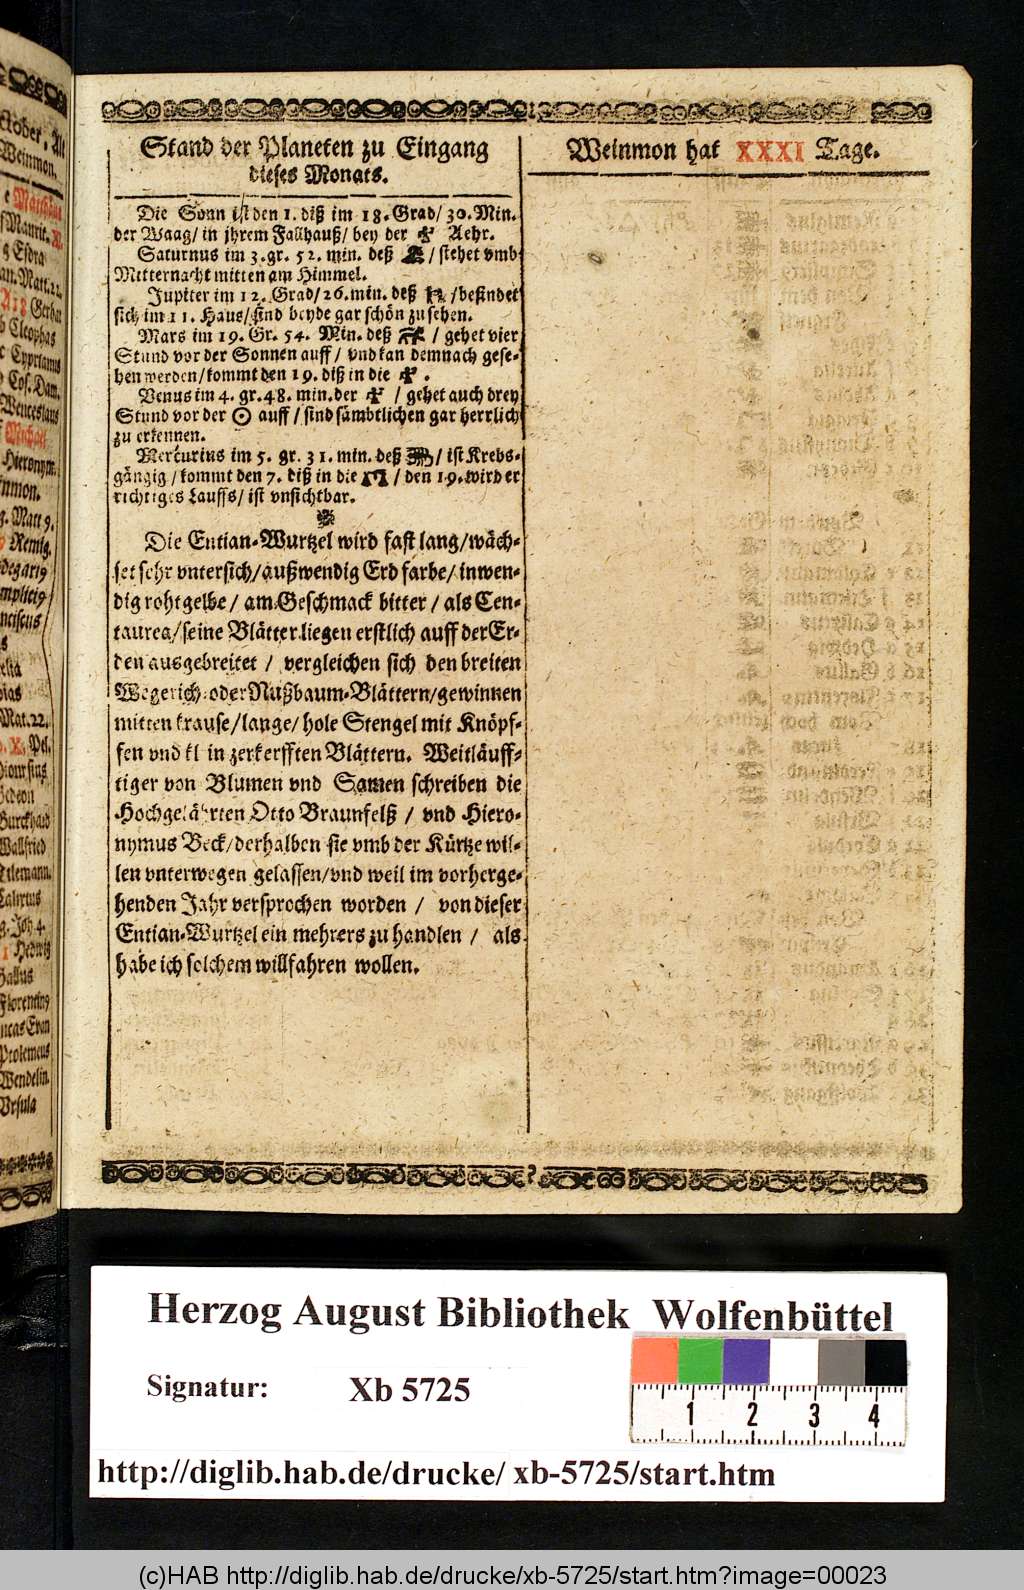 Stand der Planeten zu Eingang
dieses Monats.
Die Sonn ist den 1. diß im 18. Grad/ 30. Min.
der Waag/ in jhrem Fallhauß/ bey der Aehr.
Saturnus im 3. gr. 52. min. deß / stehet vmb
Mitternacht mitten am Himmel.
Jupiter im 12. Grad/ 26. min. deß / befindet
sich im 11. Hauß/ sind beyde gar schön zu sehen.
Mars im 19. Gr. 54. Min. deß / gehet vier
Stund vor der Sonnen auff/ vnd kan demnach gese-
hen werden/ kommt den 19. diß in die .
Venus im 4. gr. 48. min. der / gehet auch drey
Stund vor der ☉ auff/ sind sämbtlichen gar herrlich
zu erkennen.
Mercurius im 5. gr. 31. min. deß / ist Krebs-
gängig/ kommt den 7. diß in die / den 19. wird er
richtiges Lauffs/ ist vnsichtbar.
Die Entian-Wurtzel wird fast lang/ wäch-
set sehr vntersich/ außwendig Erd farbe/ inwen-
dig rohtgelbe/ am Geschmack bitter/ als Cen-
taurea/ seine Blätter liegen erstlich auff der Er-
den ausgebreitet/ vergleichen sich den breiten
Wegerich- oder Nußbaum-Blättern/ gewinnen
mitten krause/ lange/ hole Stengel mit Knöpf-
fen vnd kl in zerkerfften Blättern. Weitläuff-
tiger von Blumen vnd Samen schreiben die
Hochgelährten Otto Braunfelß/ vnd Hiero-
nymus Beck/ derhalben sie vmb der Kürtze wil-
len vnterwegen gelassen/ vnd weil im vorherge-
henden Jahr versprochen worden/ von dieser
Entian-Wurtzel ein mehrers zu handlen/ als
habe ich solchem willfahren wollen.
Weinmon hat XXXI Tage.
ctober. Alt
Weinmon.
e Matthäus
f Maurit.
g Esdra
Matt. 22.
A 18 Gerhar
b Cleophas
c Cyprianus
Cos. Dam.
Wenceslaus
Michael
Hieronym.
nmon.
Matt 9.
Remig.
Mat. 22.
Dionysius
Gedeon
Burckhard
Wallfried
Tilemann.
Calixtus
g. Joh 4.
Hedwig
Gallus
Florentinq
ucas Evan
Ptolemeus
Wendelin.
Vrsula
Herzog August Bibliothek Wolfenbüttel
Signatur: Xb 5725
1 2 3 4
http://diglib.hab.de/drucke/ xb-5725/start.htm
(c)HAB http://diglib.hab.de/drucke/xb-5725/start.htm?image=00023